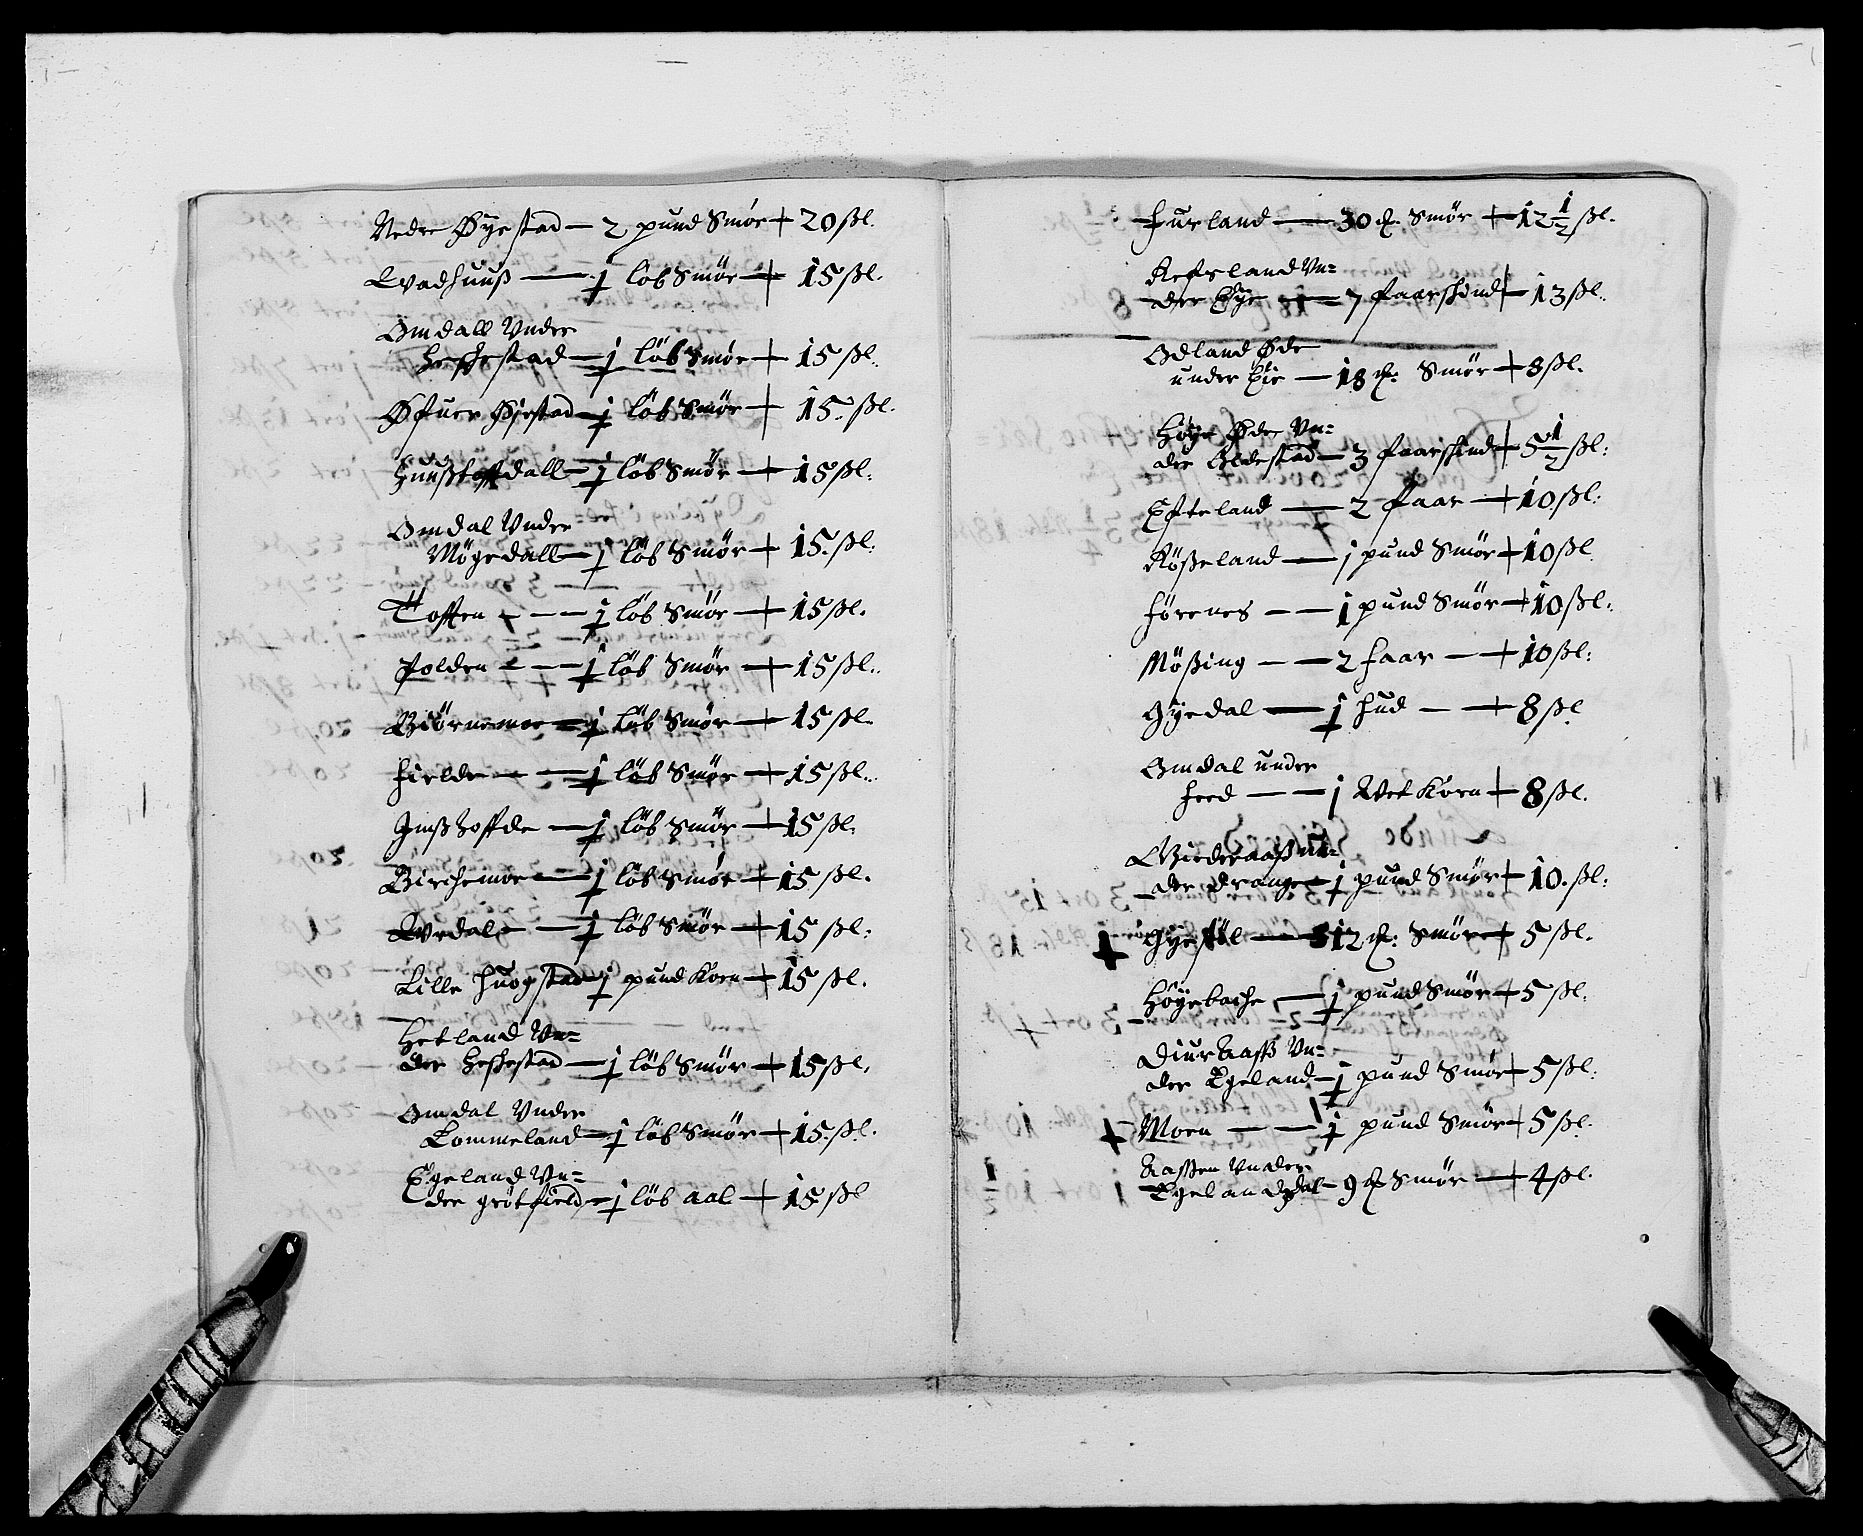 Nedre Øye stad — 2 pund Smör + 20 ßl.
Lvadhuuß — j löb Smör + 15 ßl.
Omdall Vnder
heskestad — j löb Smör + 15 ßl.
Øfuer Øiestad — j löb Smör + 15. ßl.
Huußtofftdall — j löb Smör + 15 ßl.
Omdal Vnder
Mögedall — j löb Smör + 15. ßl.
Tofften — — j löb Smör + 15 ßl.
Polden — — j löb Smör + 15 ßl.
Biörnemoe — j löb Smör + 15 ßl.
Fielde — — j löb Smör + 15 ßl.
Jmßhoffde — j löb Smör + 15 ßl.
Birchemoe — j löb Smör + 15 ßl.
Avedal — — j löb Smör + 15 ßl.
Lille Huogstad — j pund Korn + 15 ßl.
Hetland Vn=
der heskestad — j löb Smör + 15 ßl.
Omdal Vnder
Tommeland — j löb Smör + 15. ßl.
Egeland Vn=
der grötfield — j löb aal + 15 ßl
Furland — 30 Smör + 12 1/2 ßl.
Refsland Vn=
der Eye — 7 faarskind + 13 ßl.
Odland Øde
under Eie — 18 Smör + 8 ßl.
Höye Øde Vn=
der Oldestad — 3 faarskind + 5 1/2 ßl.
Efteland — 2 faar — + 10 ßl.
Rößeland — j pund Smör + 10 ßl.
Förenes — — 1 pund Smör + 10 ßl.
Mößing — — 2 faar — + 10 ßl.
Gyedal — j hud — + 8 ßl
Omdal under
feed — — j Wet Korn + 8 ßl.
Wideraaß Vn=
der drange — j pund Smör + 10. ßl.
+ Gyestöl — 12 Smör + 5 ßl.
Höyebache — j pund Smör + 5 ßl.
Diuraaß Vn=
der Egeland — j pund Smör + 5 ßl.
+ Moen — — j pund Smör + 5 ßl.
Aaßen Vnder
Egelandzdal — 9 Smör — + 4 ßl.